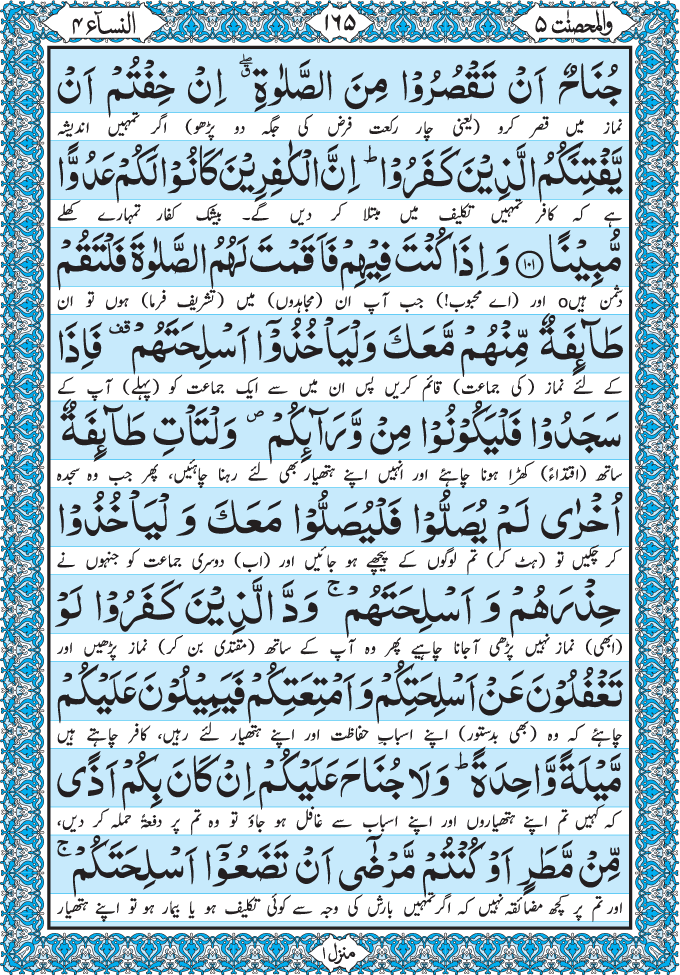 والمحصنٰت ۵ ۱۶۵ النسآء ۴
جُنَاحٌ اَنْ تَقْصُرُوْا مِنَ الصَّلٰوةِ ۖۗ اِنْ خِفْتُمْ اَنْ
نماز میں قصر کرو (یعنی چار رکعت فرض کی جگہ دو پڑھو) اگر تمہیں اندیشہ
يَّفْتِنَكُمُ الَّذِيْنَ كَفَرُوْا ؕ اِنَّ الْكٰفِرِيْنَ كَانُوْا لَكُمْ عَدُوًّا
ہے کہ کافر تمہیں تکلیف میں مبتلا کر دیں گے۔ بیشک کفار تمہارے کھلے
مُّبِيْنًا ﴿۱۰۱﴾ وَ اِذَا كُنْتَ فِيْهِمْ فَاَقَمْتَ لَهُمُ الصَّلٰوةَ فَلْتَقُمْ
دشمن ہیںo اور (اے محبوب!) جب آپ ان (مجاہدوں) میں (تشریف فرما) ہوں تو ان
طَآىِٕفَةٌ مِّنْهُمْ مَّعَكَ وَ لْيَاْخُذُوْۤا اَسْلِحَتَهُمْ ۫ فَاِذَا
کے لئے نماز (کی جماعت) قائم کریں پس ان میں سے ایک جماعت کو (پہلے) آپ کے
سَجَدُوْا فَلْيَكُوْنُوْا مِنْ وَّرَآىِٕكُمْ ۪ وَ لْتَاْتِ طَآىِٕفَةٌ
ساتھ (اقتداءً) کھڑا ہونا چاہئے اور انہیں اپنے ہتھیار بھی لئے رہنا چاہئیں، پھر جب وہ سجدہ
اُخْرٰى لَمْ يُصَلُّوْا فَلْيُصَلُّوْا مَعَكَ وَ لْيَاْخُذُوْا
کر چکیں تو (ہٹ کر) تم لوگوں کے پیچھے ہو جائیں اور (اب) دوسری جماعت کو جنہوں نے
حِذْرَهُمْ وَ اَسْلِحَتَهُمْ ۚ وَدَّ الَّذِيْنَ كَفَرُوْا لَوْ
(ابھی) نماز نہیں پڑھی آجانا چاہیے پھر وہ آپ کے ساتھ (مقتدی بن کر) نماز پڑھیں اور
تَغْفُلُوْنَ عَنْ اَسْلِحَتِكُمْ وَ اَمْتِعَتِكُمْ فَيَمِيْلُوْنَ عَلَيْكُمْ
چاہئے کہ وہ (بھی بدستور) اپنے اسبابِ حفاظت اور اپنے ہتھیار لئے رہیں، کافر چاہتے ہیں
مَّيْلَةً وَّاحِدَةً ؕ وَ لَا جُنَاحَ عَلَيْكُمْ اِنْ كَانَ بِكُمْ اَذًى
کہ کہیں تم اپنے ہتھیاروں اور اپنے اسباب سے غافل ہو جاؤ تو وہ تم پر دفعۃً حملہ کر دیں،
مِّنْ مَّطَرٍ اَوْ كُنْتُمْ مَّرْضٰۤى اَنْ تَضَعُوْۤا اَسْلِحَتَكُمْ ۚ
اور تم پر کچھ مضائقہ نہیں کہ اگر تمہیں بارش کی وجہ سے کوئی تکلیف ہو یا بیمار ہو تو اپنے ہتھیار
منزل ۱